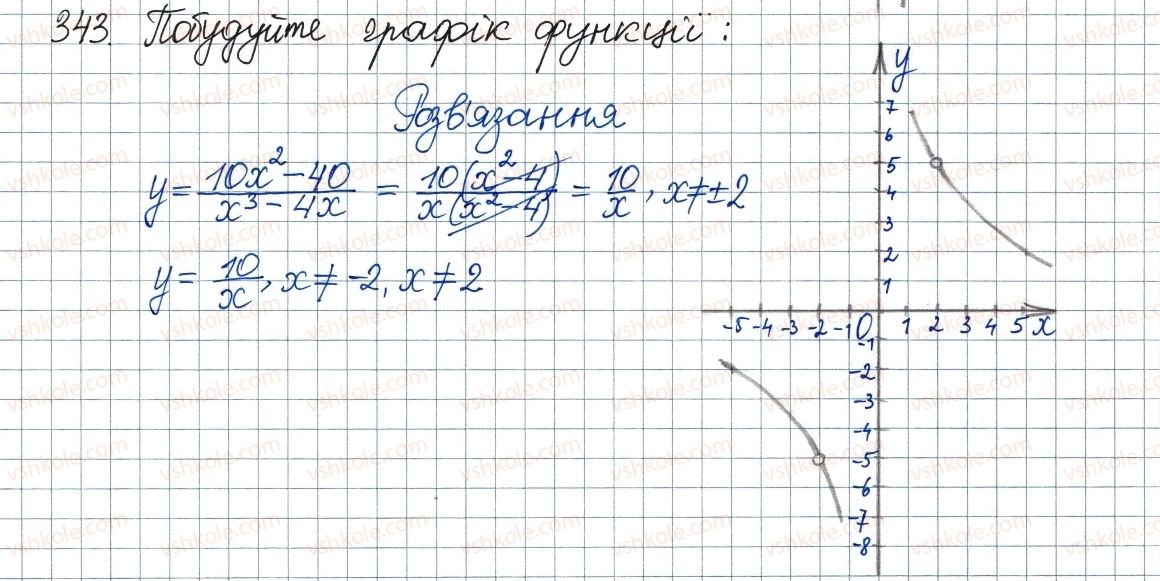 343. Побудуйте графік функції:
Розв'язання
y = (10x² - 40)/(x³ - 4x) = 10(x² - 4)/(x(x² - 4)) = 10/x, x ≠ ±2
y = 10/x, x ≠ -2, x ≠ 2
y
7
6
5
4
3
2
1
-5 -4 -3 -2 -1 0 1 2 3 4 5 x
-1
-2
-3
-4
-5
-6
-7
-8
vshkole.com